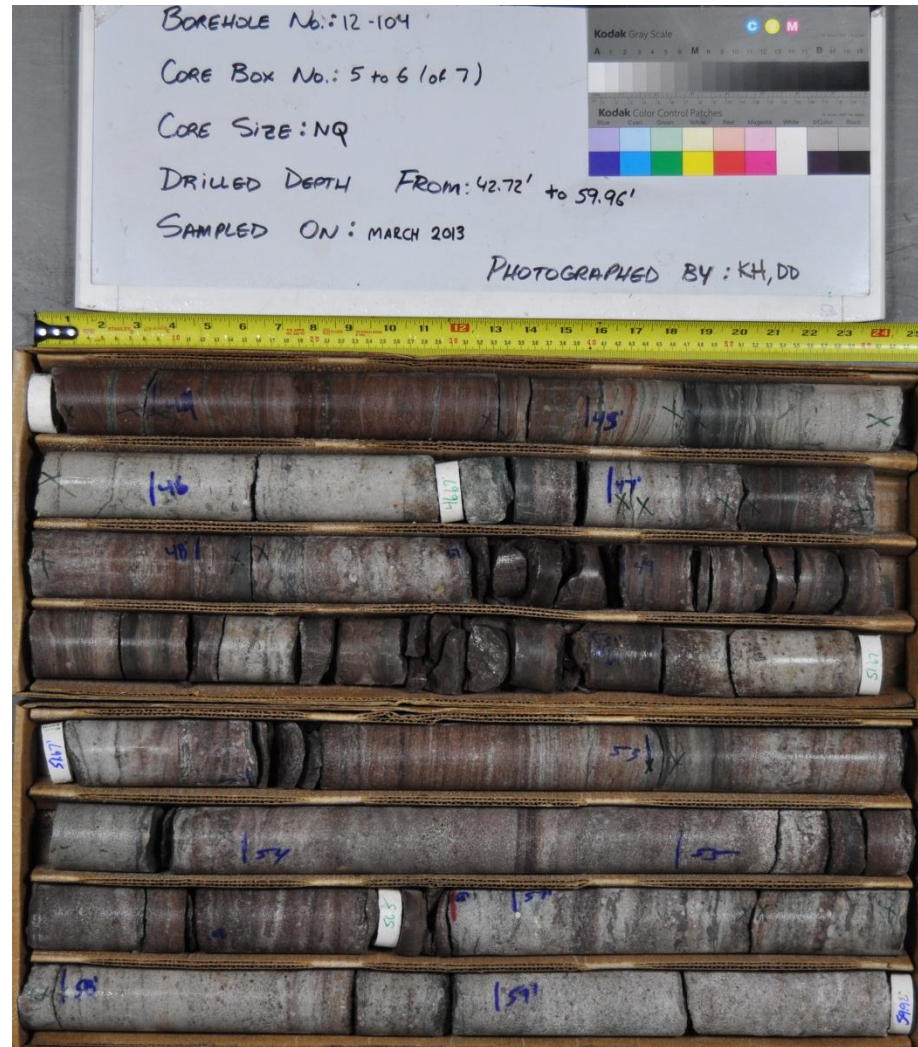 BOREHOLE No.: 12-104
CORE BOX No.: 5 to 6 (of 7)
CORE SIZE: NQ
DRILLED DEPTH FROM: 42.72' to 59.96'
SAMPLED ON: MARCH 2013
PHOTOGRAPHED BY: KH, DD
Kodak Gray Scale
C Y M
A 1 2 3 4 5 6 M 8 9 10 11 12 13 14 15 B 17 18 19
Kodak Color Control Patches
Blue Cyan Green Yellow Red Magenta White 3/Color Black
1 2 3 4 5 6 7 8 9 10 11 12 13 14 15 16 17 18 19 20 21 22 23 24 25
45'
46
46.67
47'
48
49
51.67
51.67
53
54
55
56.5
57
58'
59'
59.92'